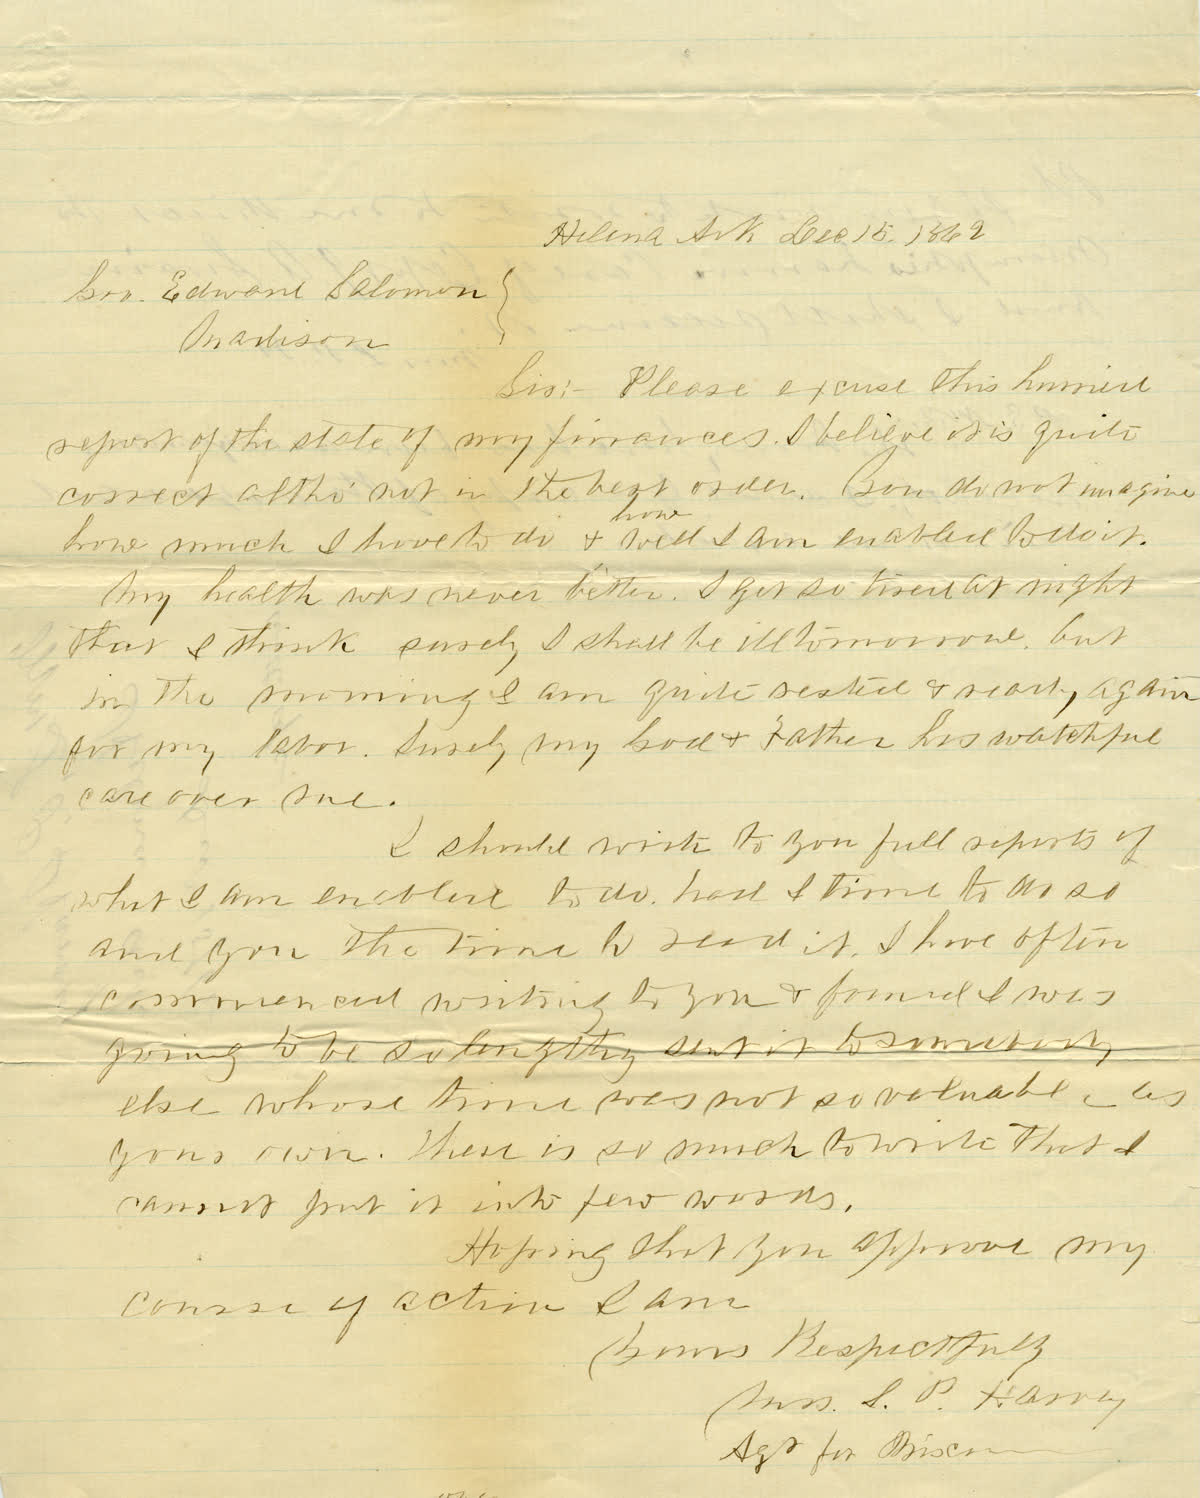 Helena Ark Dec 15. 1862
Gov. Edward Salomon
Madison
Sir:- Please excuse this hurried
report of the state of my finances. I believe it is quite
correct altho' not in the best order. You do not imagine
how much I have to do & how well I am enabled to do it.
My health was never better. I get so tired at night
that I think surely I shall be ill tomorrow. but
in the morning I am quite rested & ready again
for my labor. Surely my God & Father has watchful
care over me.
I should write to you full reports of
what I am enabled to do. had I time to do so
and you the time to read it. I have often
commenced writing to you & found I was
going to be so lengthy sent it to somebody
else whose time was not so valuable as
your own. There is so much to write that I
cannot put it into few words.
Hoping that you approve my
course of action I am
Yours Respectfully
Mrs. L. P. Harvey
Agt for Wiscon